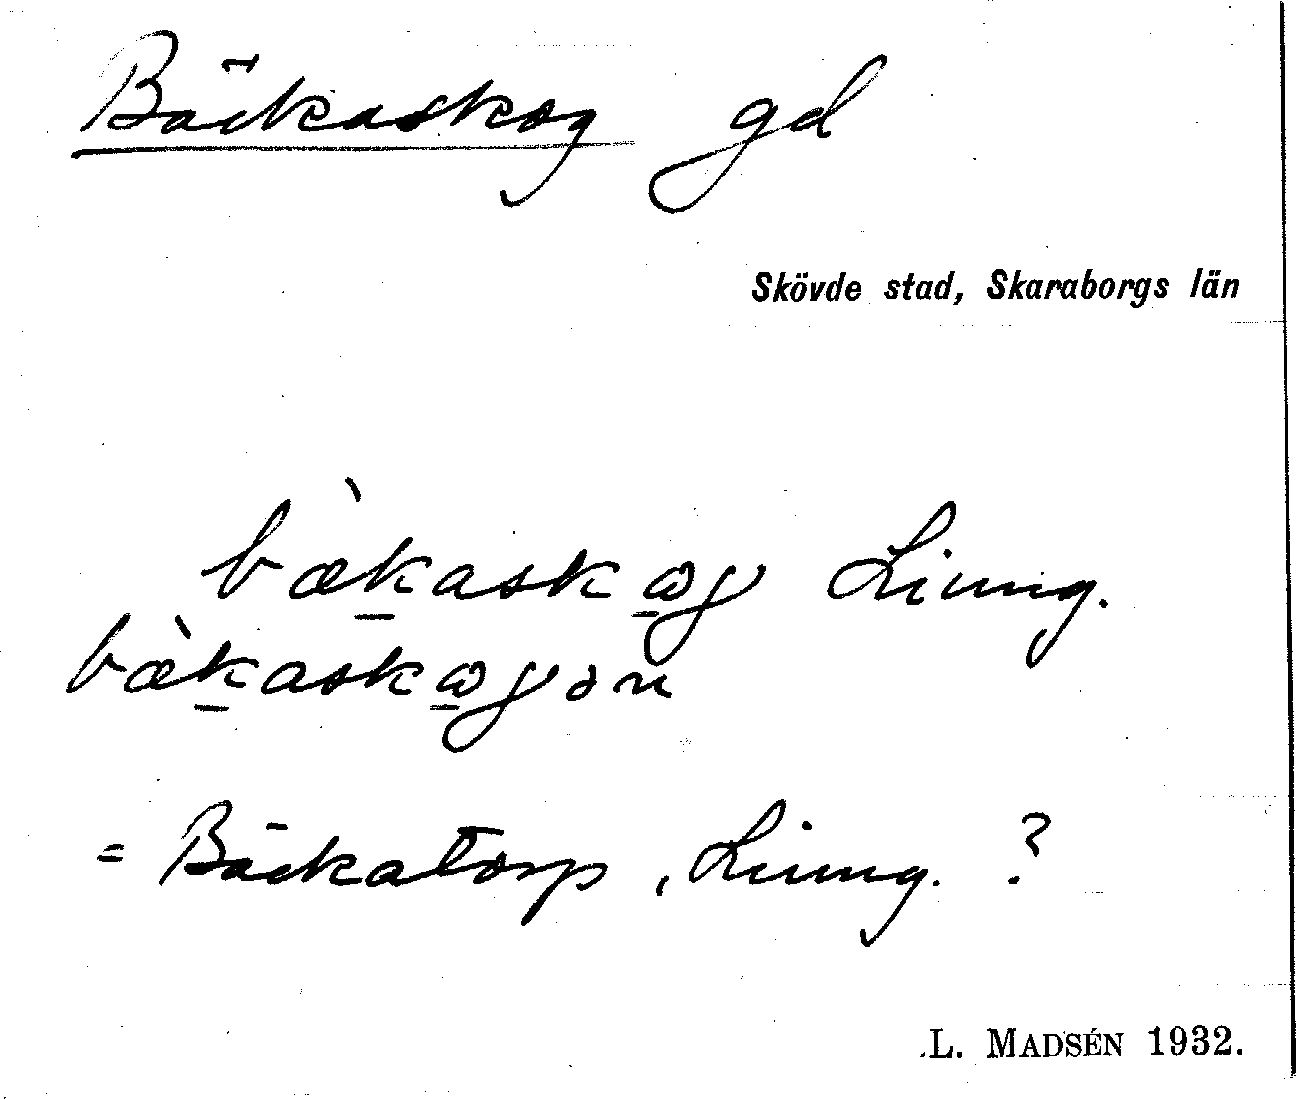 Bäckaskog gd
Skövde stad, Skaraborgs län
bæ̀k̲askω̲g Ljung.
bæ̀k̲askω̲gən
= Bäckatorp, Ljung. ?
L. MADSÉN 1932.